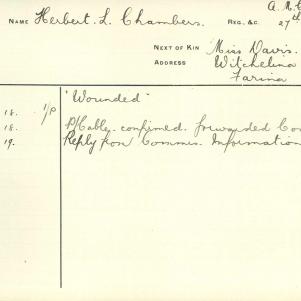 NAME Herbert. L. Chambers. REG. &C. A. M. C
27th
NEXT OF KIN Miss Davis.
ADDRESS Witchelina
Farina
"Wounded"
18. 1/P P/Cable. confirmed. forwarded Co
18.
19. Reply from Commis. Information